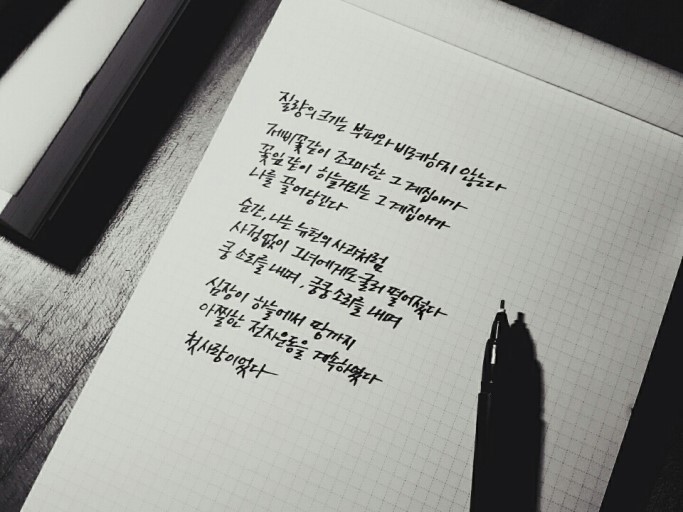 질량의 크기는 부피와 비례하지 않는다
제비꽃같이 조그마한 그 계집애가
꽃잎같이 하늘거리는 그 계집애가
나를 끌어당긴다
순간, 나는 뉴턴의 사과처럼
사정없이 그녀에게로 굴러 떨어졌다
쿵 소리를 내며, 쿵쿵 소리를 내며
심장이 하늘에서 땅까지
아찔한 진자운동을 계속하였다
첫사랑이었다